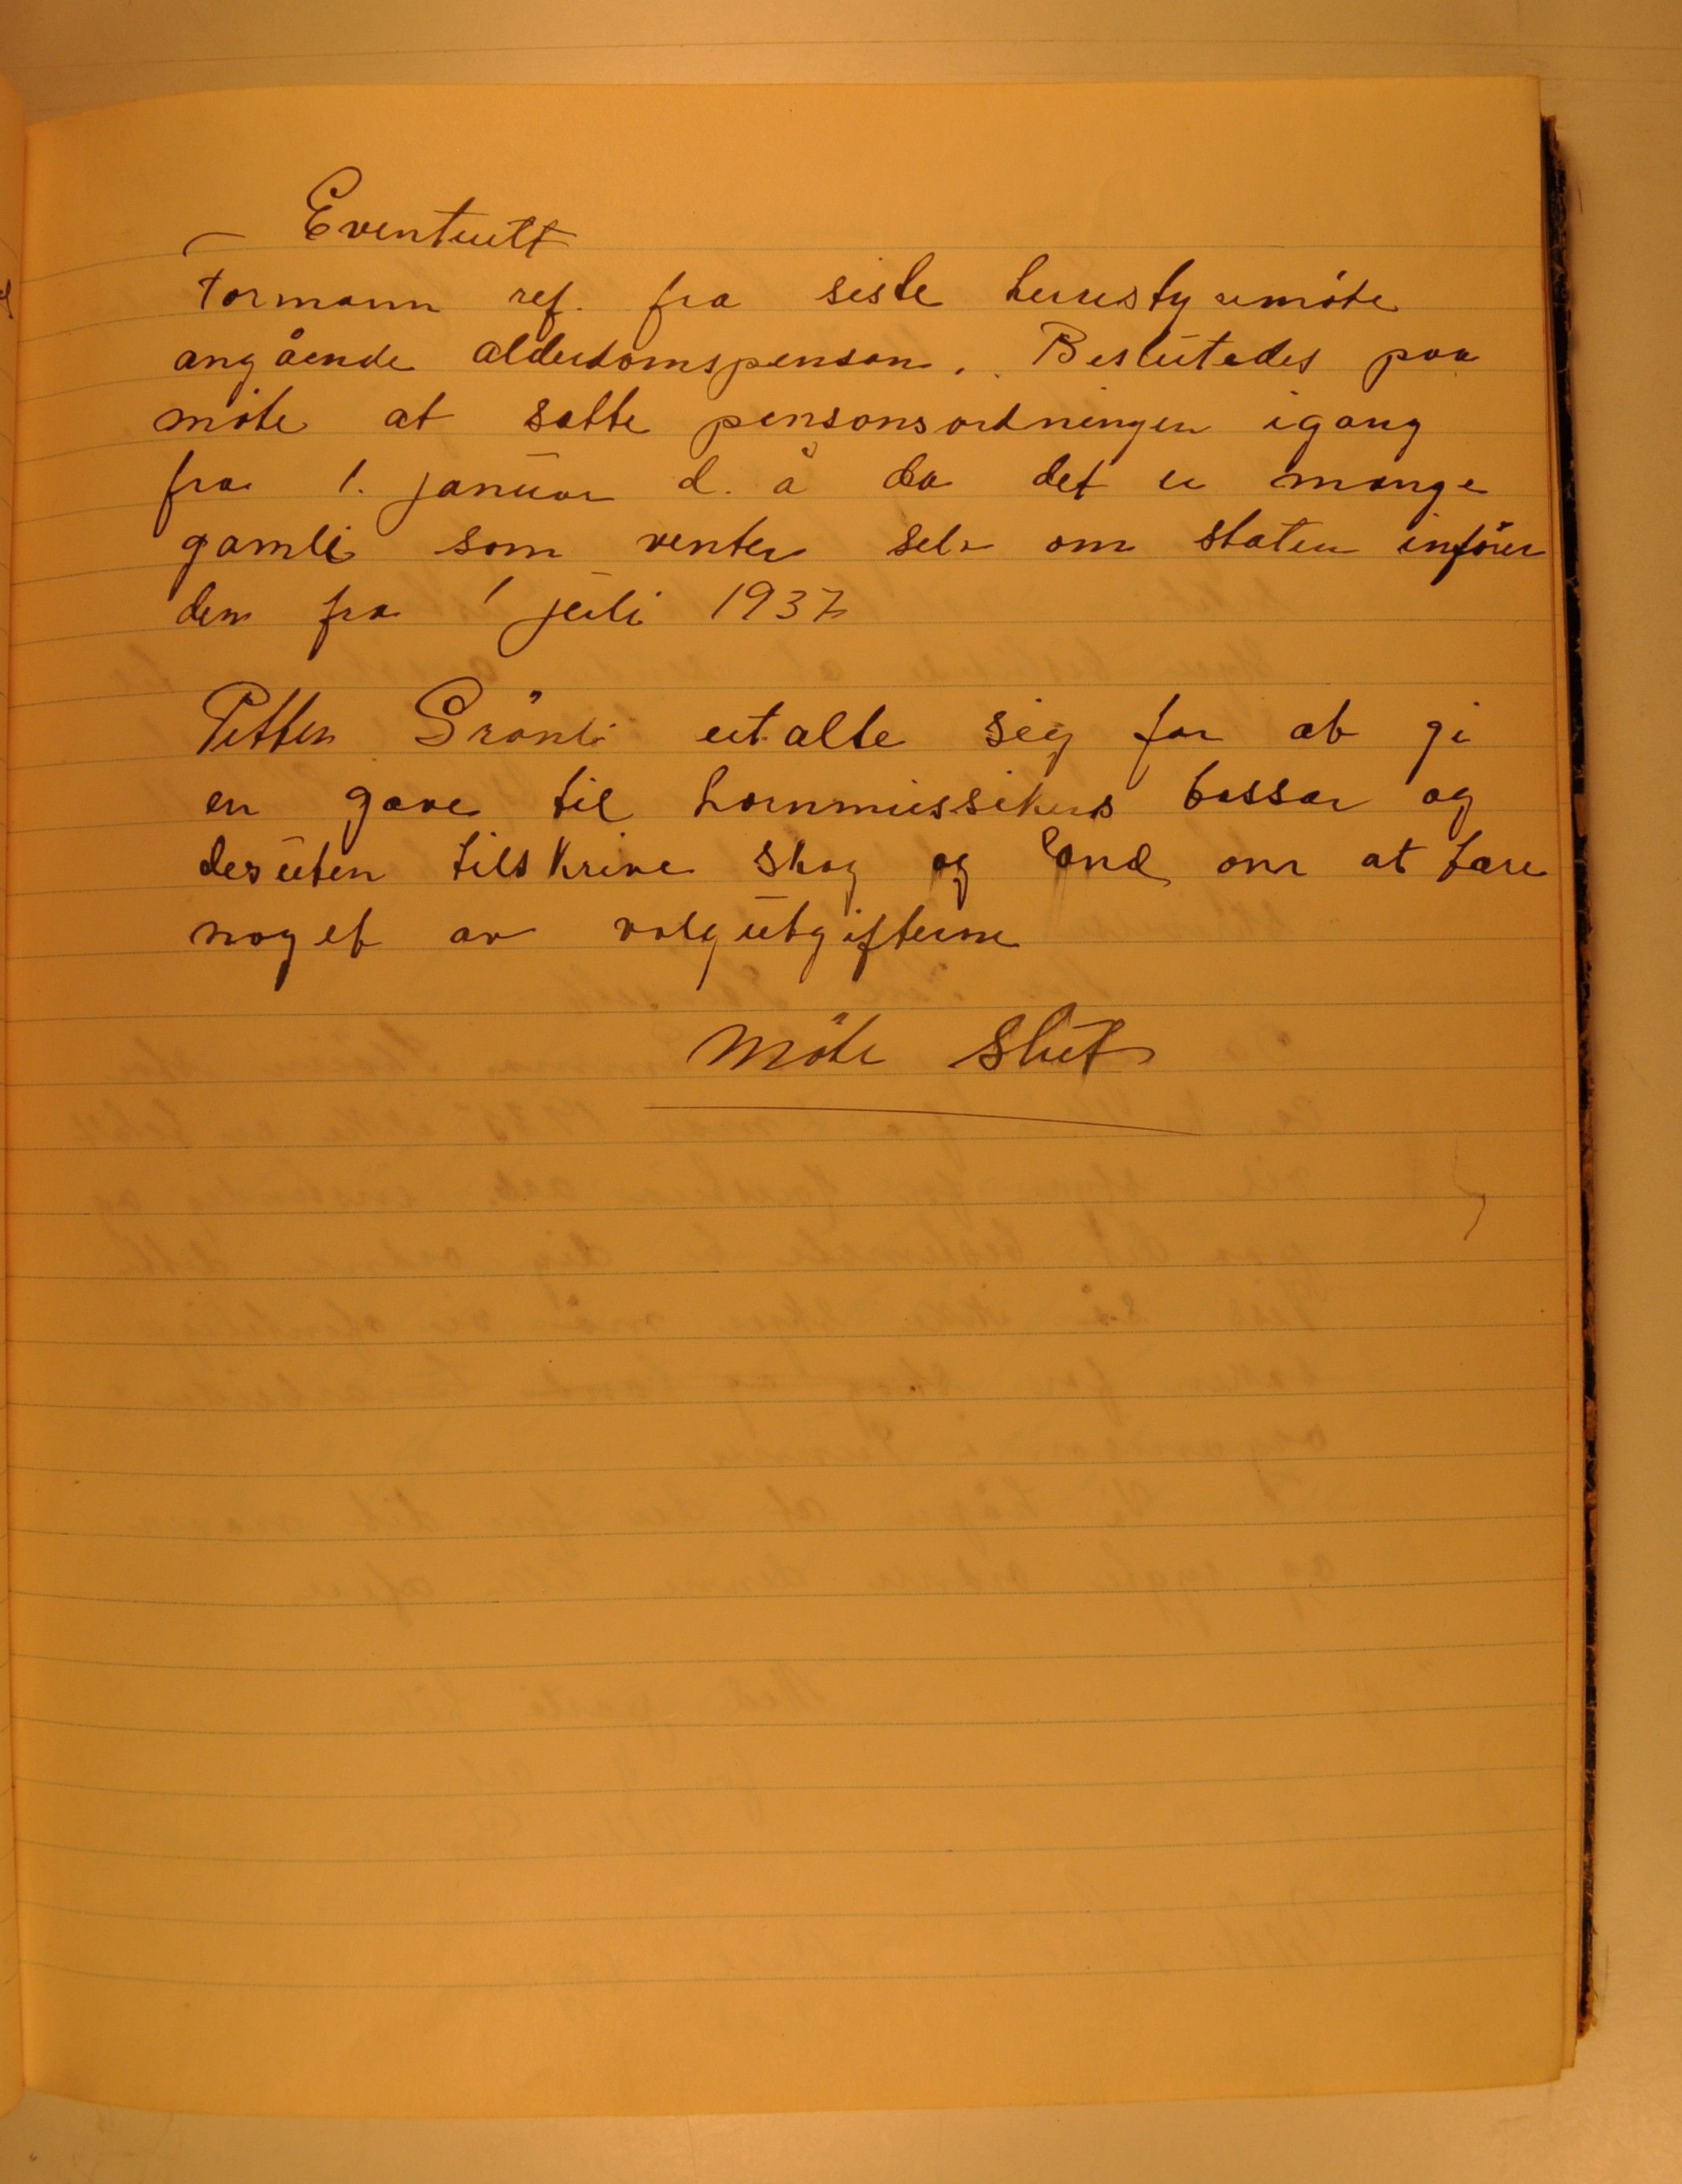 Eventuelt
Formann ref. fra siste herrestyremöte
angående alderdomspenson. Beslutedes paa
möte at sette pensonsordningen igang
fra 1. januar d. å da det er mange
gamle som venter selv om staten införer
den fra 1 juli 1937
Petter Grönli utalte sig for at gi
en gave til hornmussikens bassar og
desuten tilskrive Skog og Land om at bære
noget av valgutgifterne
Möte Slut